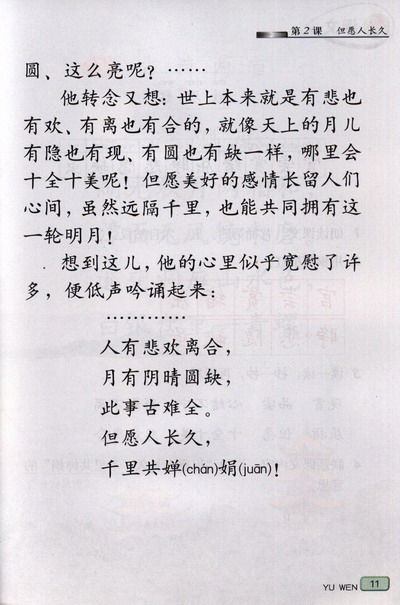 第2课 但愿人长久
圆、这么亮呢？……
他转念又想：世上本来就是有悲也
有欢、有离也有合的，就像天上的月儿
有隐也有现、有圆也有缺一样，哪里会
十全十美呢！但愿美好的感情长留人们
心间，虽然远隔千里，也能共同拥有这
一轮明月！
想到这儿，他的心里似乎宽慰了许
多，便低声吟诵起来：
…………
人有悲欢离合，
月有阴晴圆缺，
此事古难全。
但愿人长久，
千里共婵(chán)娟(juān)！
YU WEN 11